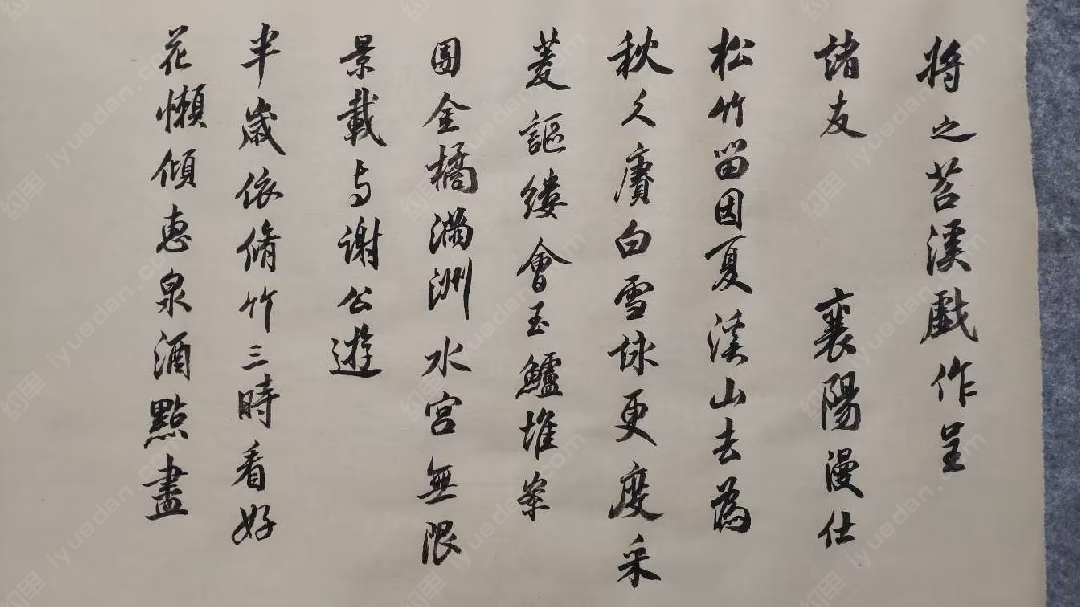 將之苕溪戲作呈
諸友 襄陽漫仕
松竹留因夏溪山去為
秋久賡白雪詠更度采
菱謳縷會玉鱸堆案
團金橘滿洲水宮無限
景載与謝公遊
半歲依脩竹三時看好
花懶傾惠泉酒點盡